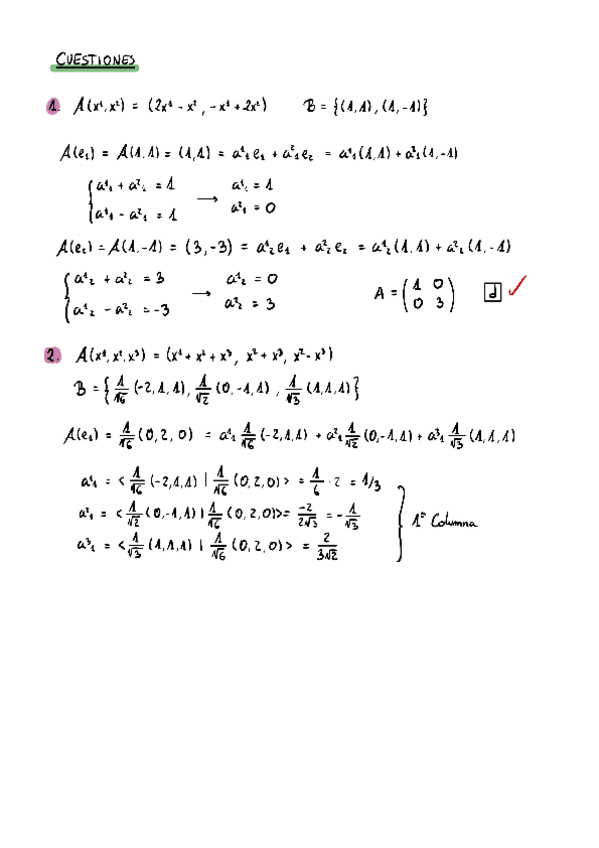 CUESTIONES
1. A(x¹,x²) = (2x¹ - x², -x¹ + 2x²) B = {(1,1), (1,-1)}
A(e₁) = A(1,1) = (1,1) = a¹₁e₁ + a²₁e₂ = a¹₁(1,1) + a²₁(1,-1)
a¹₁ + a²₁ = 1 → a¹₁ = 1
a¹₁ - a²₁ = 1 a²₁ = 0
A(e₂) = A(1,-1) = (3,-3) = a¹₂e₁ + a²₂e₂ = a¹₂(1,1) + a²₂(1,-1)
a¹₂ + a²₂ = 3 → a¹₂ = 0
a¹₂ - a²₂ = -3 a²₂ = 3 A = (1 0 / 0 3) d ✓
2. A(x¹,x²,x³) = (x¹ + x² + x³, x² + x³, x² - x³)
B = {1/√6 (-2,1,1), 1/√2 (0,-1,1), 1/√3 (1,1,1)}
A(e₁) = 1/√6 (0,2,0) = a¹₁ 1/√6 (-2,1,1) + a²₁ 1/√2 (0,-1,1) + a³₁ 1/√3 (1,1,1)
a¹₁ = <1/√6 (-2,1,1) | 1/√6 (0,2,0)> = 1/6 · 2 = 1/3
a²₁ = <1/√2 (0,-1,1) | 1/√6 (0,2,0)> = -2/2√3 = -1/√3 1ª Columna
a³₁ = <1/√3 (1,1,1) | 1/√6 (0,2,0)> = 2/3√2